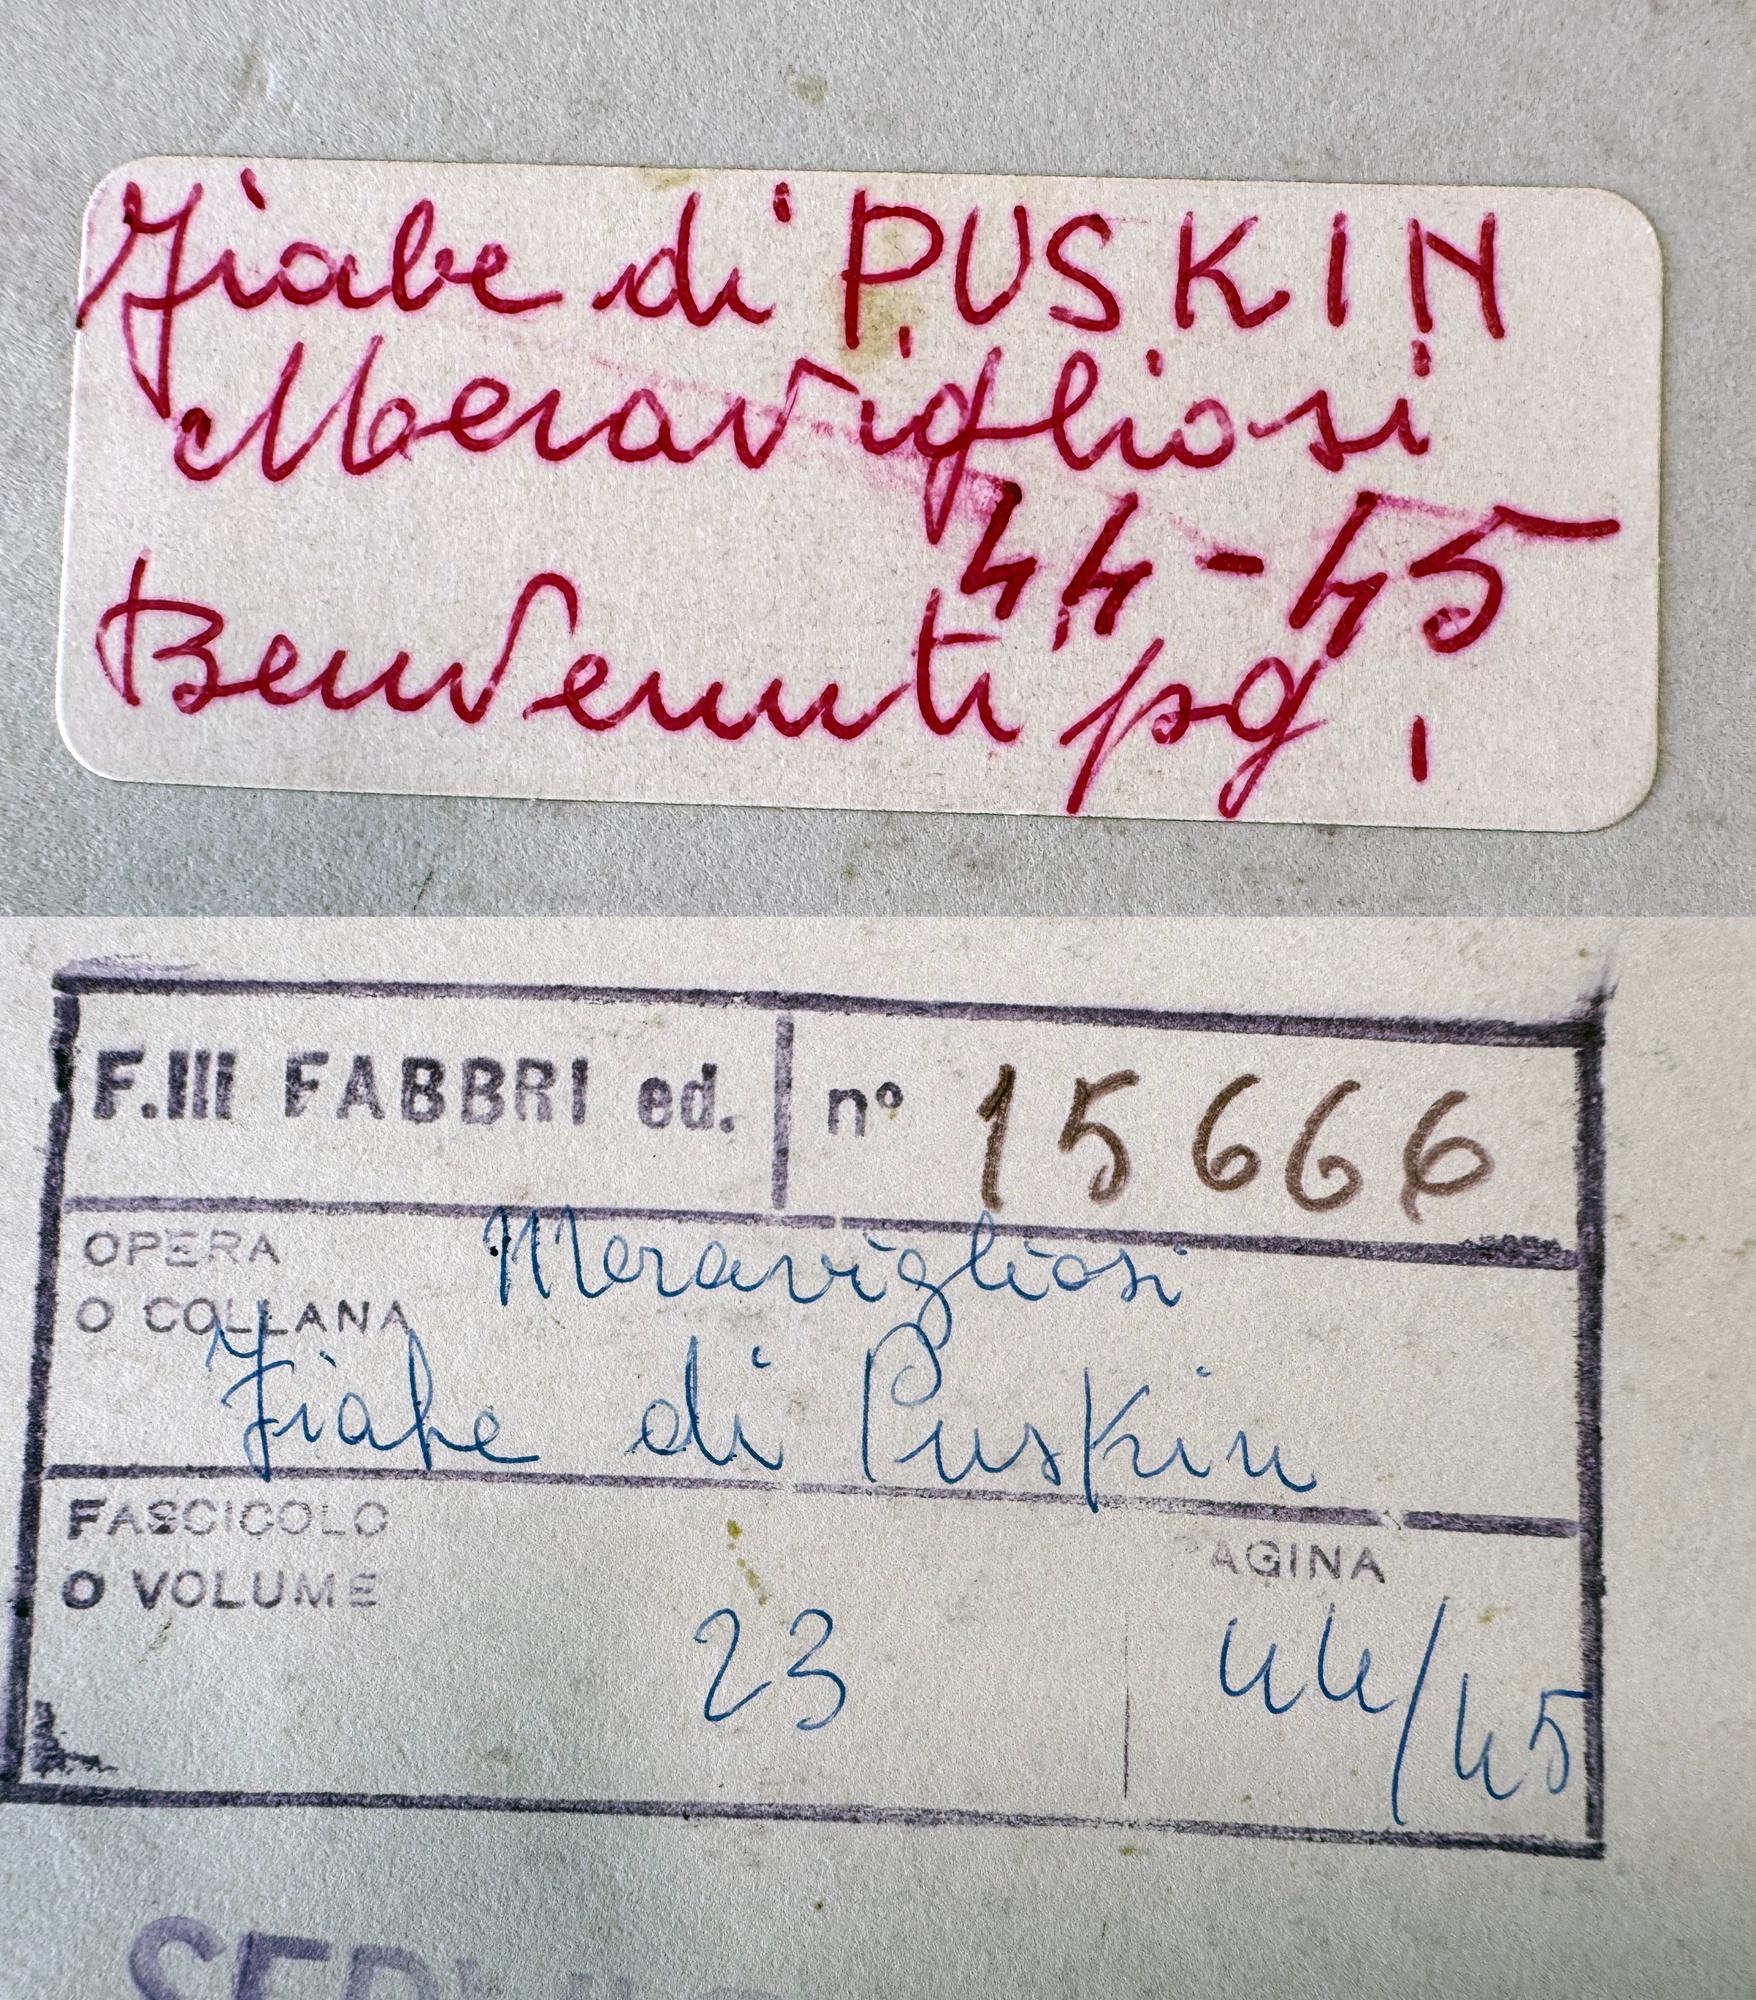 Fiabe di PUSKIN
Meravigliosi
44-45
Benvenuti pg.
F.lli FABBRI ed.
n° 15666
OPERA
O COLLANA
Meravigliosi
Fiabe di Puskin
FASCICOLO
O VOLUME
23
PAGINA
44/45